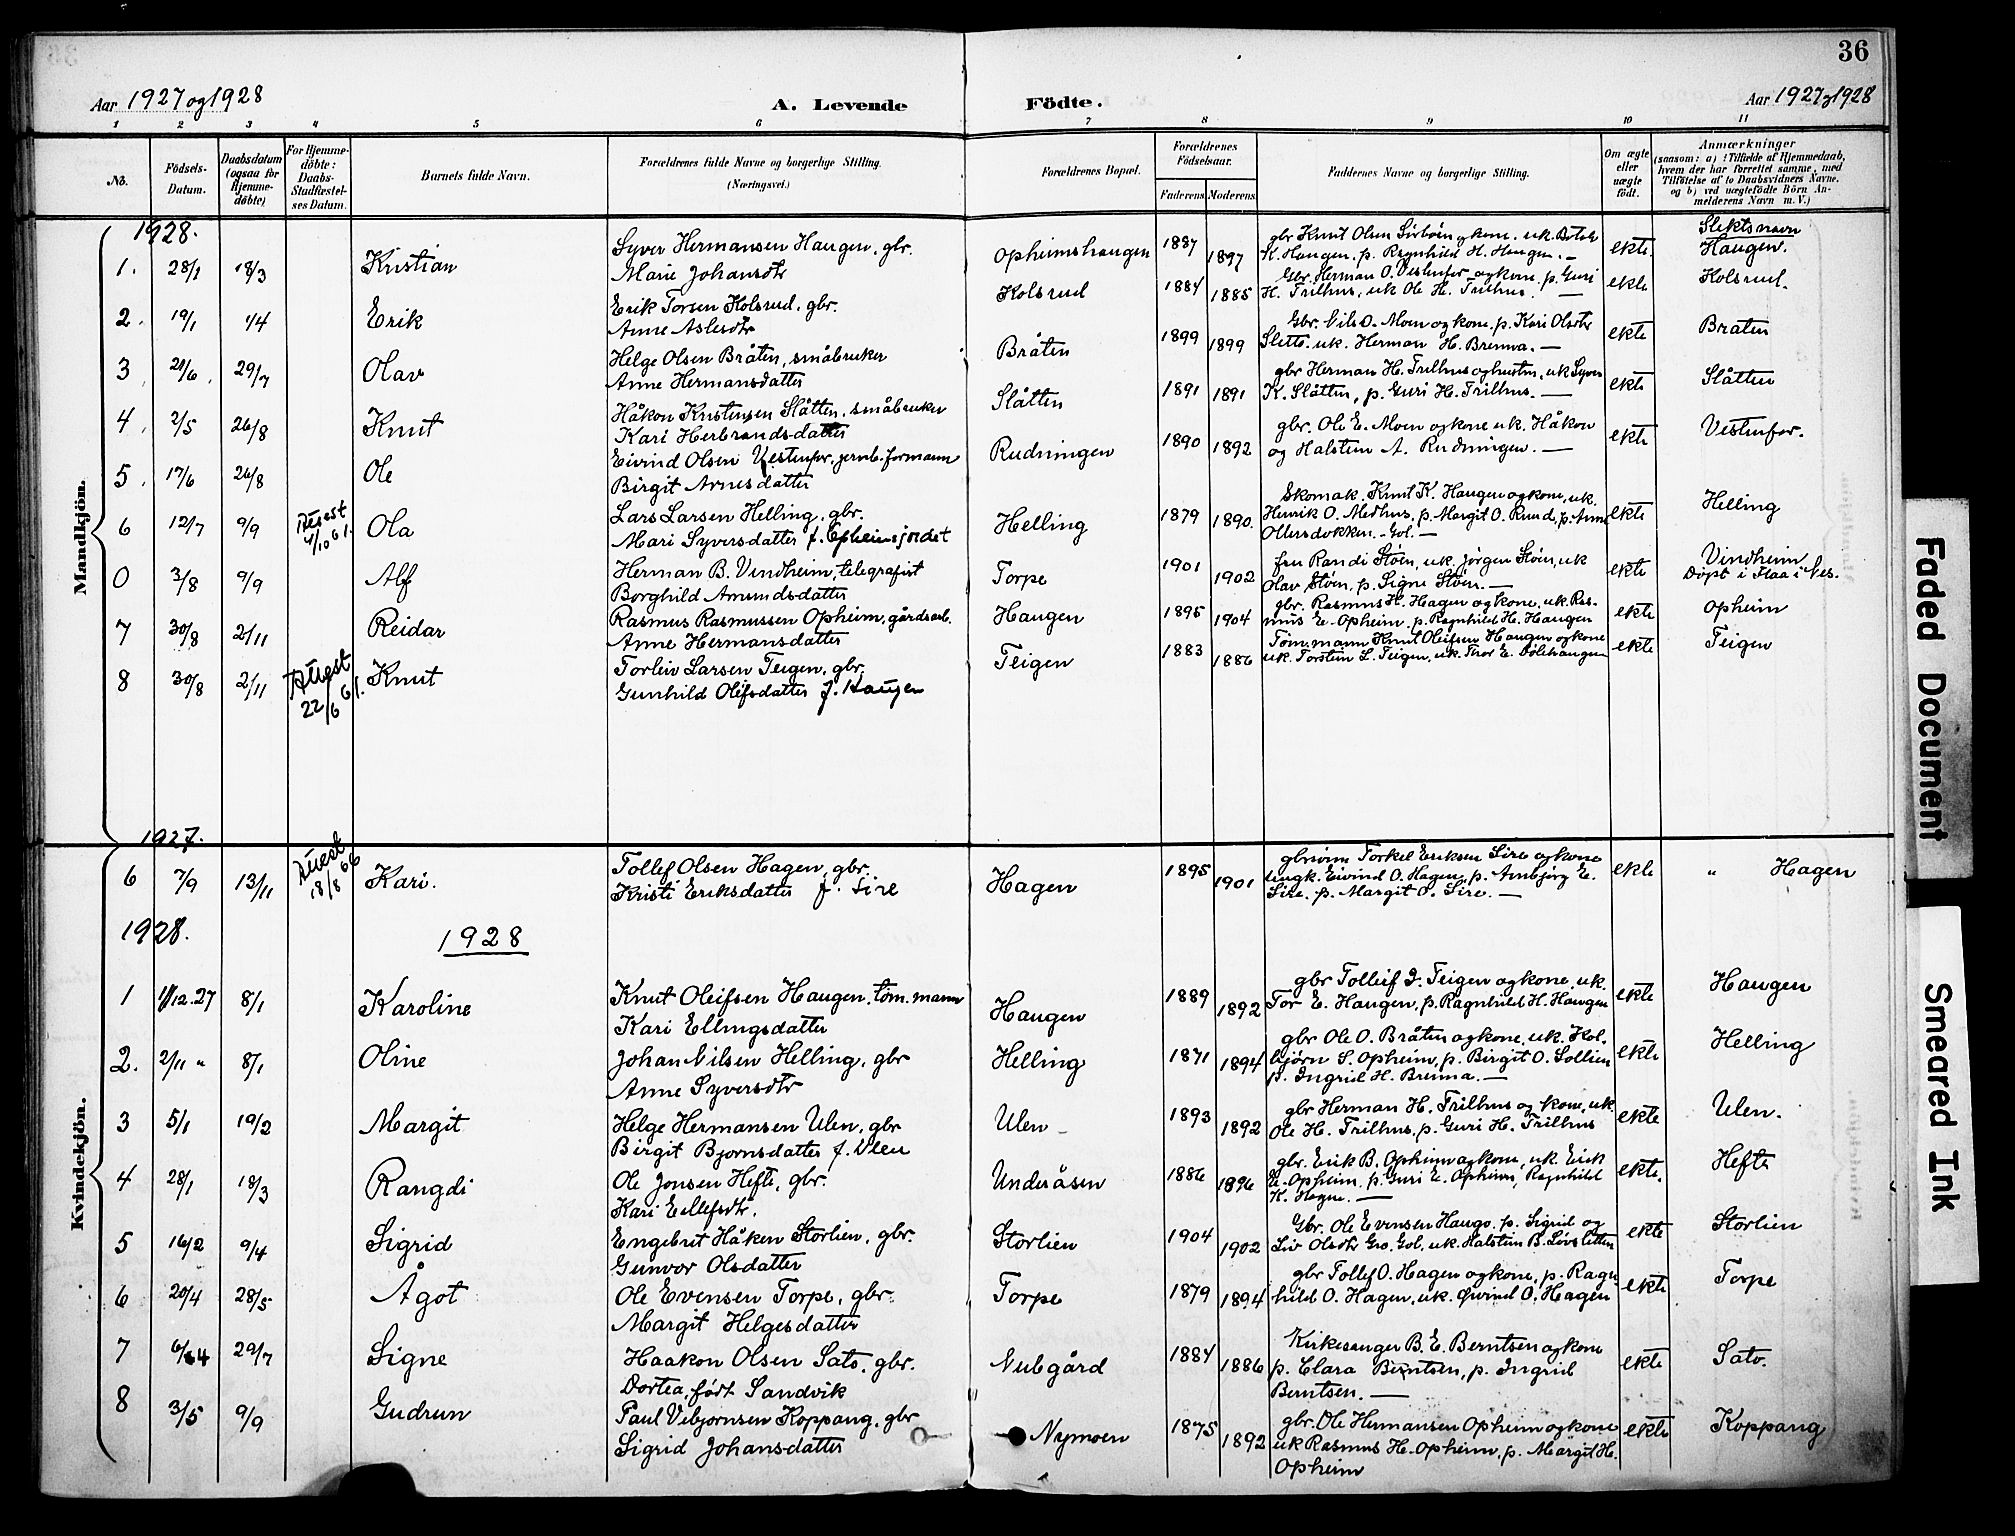 36
Aar 1927 og 1928
A. Levende Födte.
Aar 1927 og 1928
1 2 3 4 5 6 7 8 9 10 11
No.
Födsels-
Datum.
Daabsdatum
(ogsaa for
Hjemme-
döbte)
For Hjemme-
döbte:
Daabs-
Stadfæstel-
ses Datum.
Barnets fulde Navn.
Forældrenes fulde Navne og borgerlige Stilling.
(Næringsvei.)
Forældrenes Bopæl.
Forældrenes
Födselsaar.
Faderens Moderens
Faddernes Navne og borgerlige Stilling.
Om ægte
eller
uægte
födt.
Anmærkninger
(saasom: a) i Tilfælde af Hjemmedaab,
hvem der har forrettet samme, med
Tilföielse af to Daabsvidners Navne.
og b) ved uægtefödte Börn An-
melderens Navn m. V.)
Mandkjön.
1928.
Slektsnavn
1. 28/1 18/3 Kristian
Syver Hermansen Haugen, gbr.
Marie Johansdtr
Opheimshaugen 1887 1897
gbr Knut Olsen Sirbøen og kone, uk. Botolv
K. Haugen, p. Ragnhild H. Haugen. —
ekte. Haugen.
2. 19/1 1/4 Erik
Erik Torsen Kolsrud, gbr.
Anne Aslesdtr
Kolsrud 1884 1885
Gbr. Herman O. Vestenfor og kone, p. Guri
H. Trilhus, uk Ole H. Trilhus. —
ekte Kolsrud.
3. 21/6 29/7 Olav
Helge Olsen Bråten, småbruker
Anne Hermansdatter
Bråten 1899 1899
Gbr. Nils O. Moen og kone, p. Kari Olsdtr
Sletto. uk. Herman H. Brenna. —
ekte Bråten
4. 2/5 26/8 Knut
Håkon Kristensen Slåtten, småbruker
Kari Herbrandsdatter
Slåtten 1891 1891
gbr Herman H. Trilhus og hustru, uk Syver
K. Slåtten, p. Guri H. Trilhus. —
ekte Slåtten
5. 17/6 26/8 Ole
Eivind Olsen Vestenfor, jernb. formann
Birgit Arnesdatter
Rudningen 1890 1892
gbr. Ole E. Moen og kone uk. Håkon
og Halstein A. Rudningen. —
ekte Vestenfor.
6 12/7 9/9 Attest 4/10 61. Ola
Lars Larsen Helling, gbr.
Mari Syversdatter f. Opheimsjordet
Helling 1879 1890
Skomak. Knut K. Haugen og kone, uk.
Henrik O. Medhus, p. Margit O. Rund, p. Anne
Olersdokken. - Gol. —
ekte Helling
0 3/8 9/9 Alf
Herman B. Vindheim, telegrafist
Borghild Amundsdatter
Torpe 1901 1902
fru Randi Støen, uk. Jörgen Støen, uk
Olav Støen, p. Signe Støen. —
ekte Vindheim
Döpt i Flaa i Nes.
7 30/8 2/11 Reidar
Rasmus Rasmussen Opheim, gårdsarb.
Anne Hermansdatter
Haugen 1895 1904
gbr. Rasmus H. Hagen og kone, uk. Ras-
mus E. Opheim, p. Ragnhild H. Haugen
ekte Opheim
8 30/8 2/11 Attest 22/6 61. Knut
Torleiv Larsen Teigen, gbr.
Gunhild Oleifsdatter f. Haugen
Teigen 1883 1886
Tömmann Knut Oleifsen Haugen og kone
uk. Torstein L. Teigen, uk. Thor E.
ekte Teigen
Kvindekjön.
1927.
6 7/9 13/11 Attest 18/8 66 Kari.
Tollef Olsen Hagen, gbr.
Kristi Eriksdatter f. Sire
Hagen 1895 1901
Torkel Eriksen Sire og kone
ungk. Eivind O. Hagen, p. Ambjörg E.
Sire, p. Margit O. Sire. —
ekte " Hagen
1928. 1928
1 1/12.27 8/1 Karoline
Knut Oleifsen Haugen, töm.mann
Kari Ellingsdatter
Haugen 1889 1892
gbr Tolleif J. Teigen og kone, uk.
Tor E. Haugen, p. Ragnhild H. Haugen
ekte Haugen
2. 2/11 " 8/1 Oline
Johan Nilsen Helling, gbr
Anne Syversdtr
Helling 1871 1894
gbr Ole O. Bråten og kone, uk. Kol-
bjørn S. Opheim, p. Birgit O. Sollien
p. Ingrid H. Brenna. —
ekte Helling
3 5/1 19/2 Margit
Helge Hermansen Ulen, gbr
Birgit Bjornsdatter f. Ulen
Ulen 1893 1892
gbr Herman H. Trilhus og kone, uk.
Ole H. Trilhus, p. Guri H. Trilhus
ekte Ulen.
4 28/1 18/3 Rangdi
Ole Jonsen Hefte, gbr.
Kari Eilefsdtr.
Underåsen 1886 1896
gbr. Erik B. Opheim og kone, uk. Eirik
E. Opheim, p. Guri E. Opheim, Ragnhild
K. Hagen. —
ekte. Hefte
5 16/2 9/4 Sigrid
Engebret Håken Storlien, gbr.
Gunvor Olsdatter
Storlien 1904 1902
Gbr. Ole Evensen Haugo. p. Sigrid og
Liv Olsdtr Gro, Gol, uk. Halstein B. Lövsletten
ekte Storlien
6 20/4 28/5 Ågot
Ole Evensen Torpe, gbr.
Margit Helgesdatter
Torpe 1879 1894
gbr Tollef O. Hagen og kone, p. Ragn-
hild O. Hagen, uk. Øivind O. Hagen
ekte Torpe
7 6/4 29/7 Signe
Haakon Olsen Sato, gbr.
Dortea, født Sandvik
Nubgård 1884 1886
Kirkesanger B. E. Berntsen og kone
p. Clara Berntsen, p. Ingrid
Berntsen. —
ekte Sato.
8 3/5 9/9 Gudrun
Paul Vebjornsen Koppang, gbr
Sigrid Johansdatter
Nymoen 1875 1892
gbr. Ole Hermansen Opheim og kone
uk Rasmus H. Opheim, p. Margit H.
Opheim
ekte Koppang
Faded Document
Smeared Ink